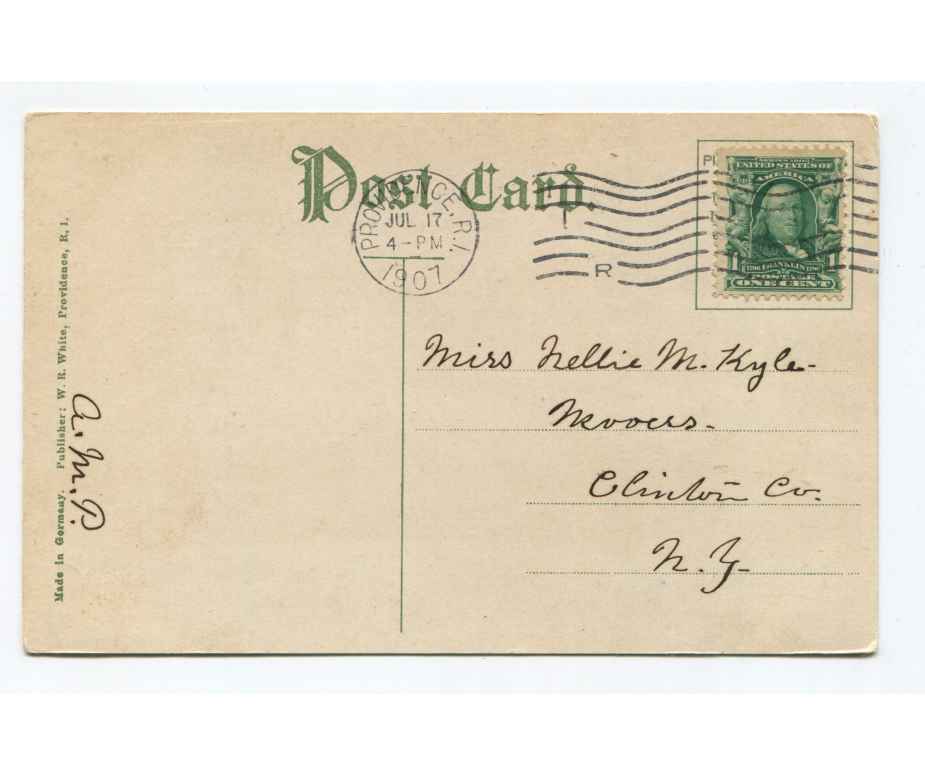 Post Card.
PROVIDENCE, R.I.
JUL 17
4-PM
1907
R
UNITED STATES OF
AMERICA
FRANKLIN
POSTAGE
1 ONE CENT 1
Miss Nellie M. Kyle-
Mooers-
Clinton Co.
N.Y-
Made in Germany. Publisher: W. R. White, Providence, R. I.
A. M. P.